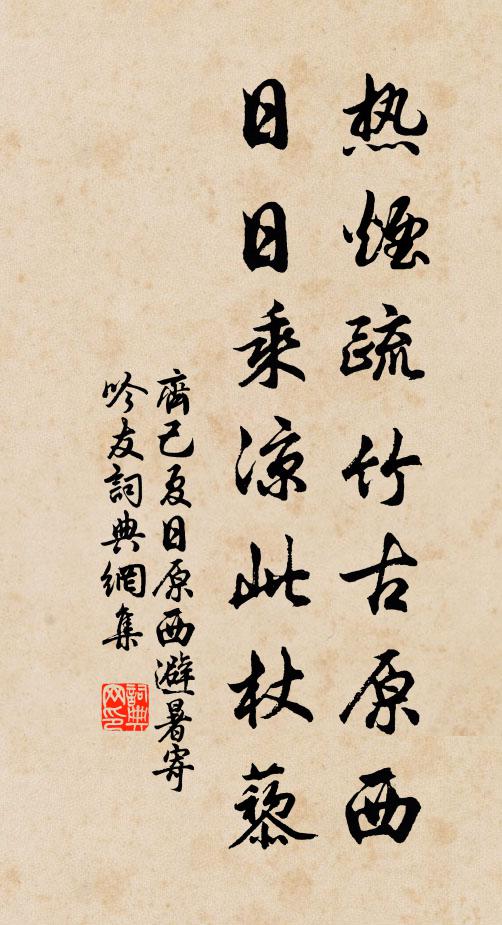 热煙疏竹古原西
日日乘凉此杖藜
齊己夏日原西避暑寄
吟友詞典網集
詞典网印